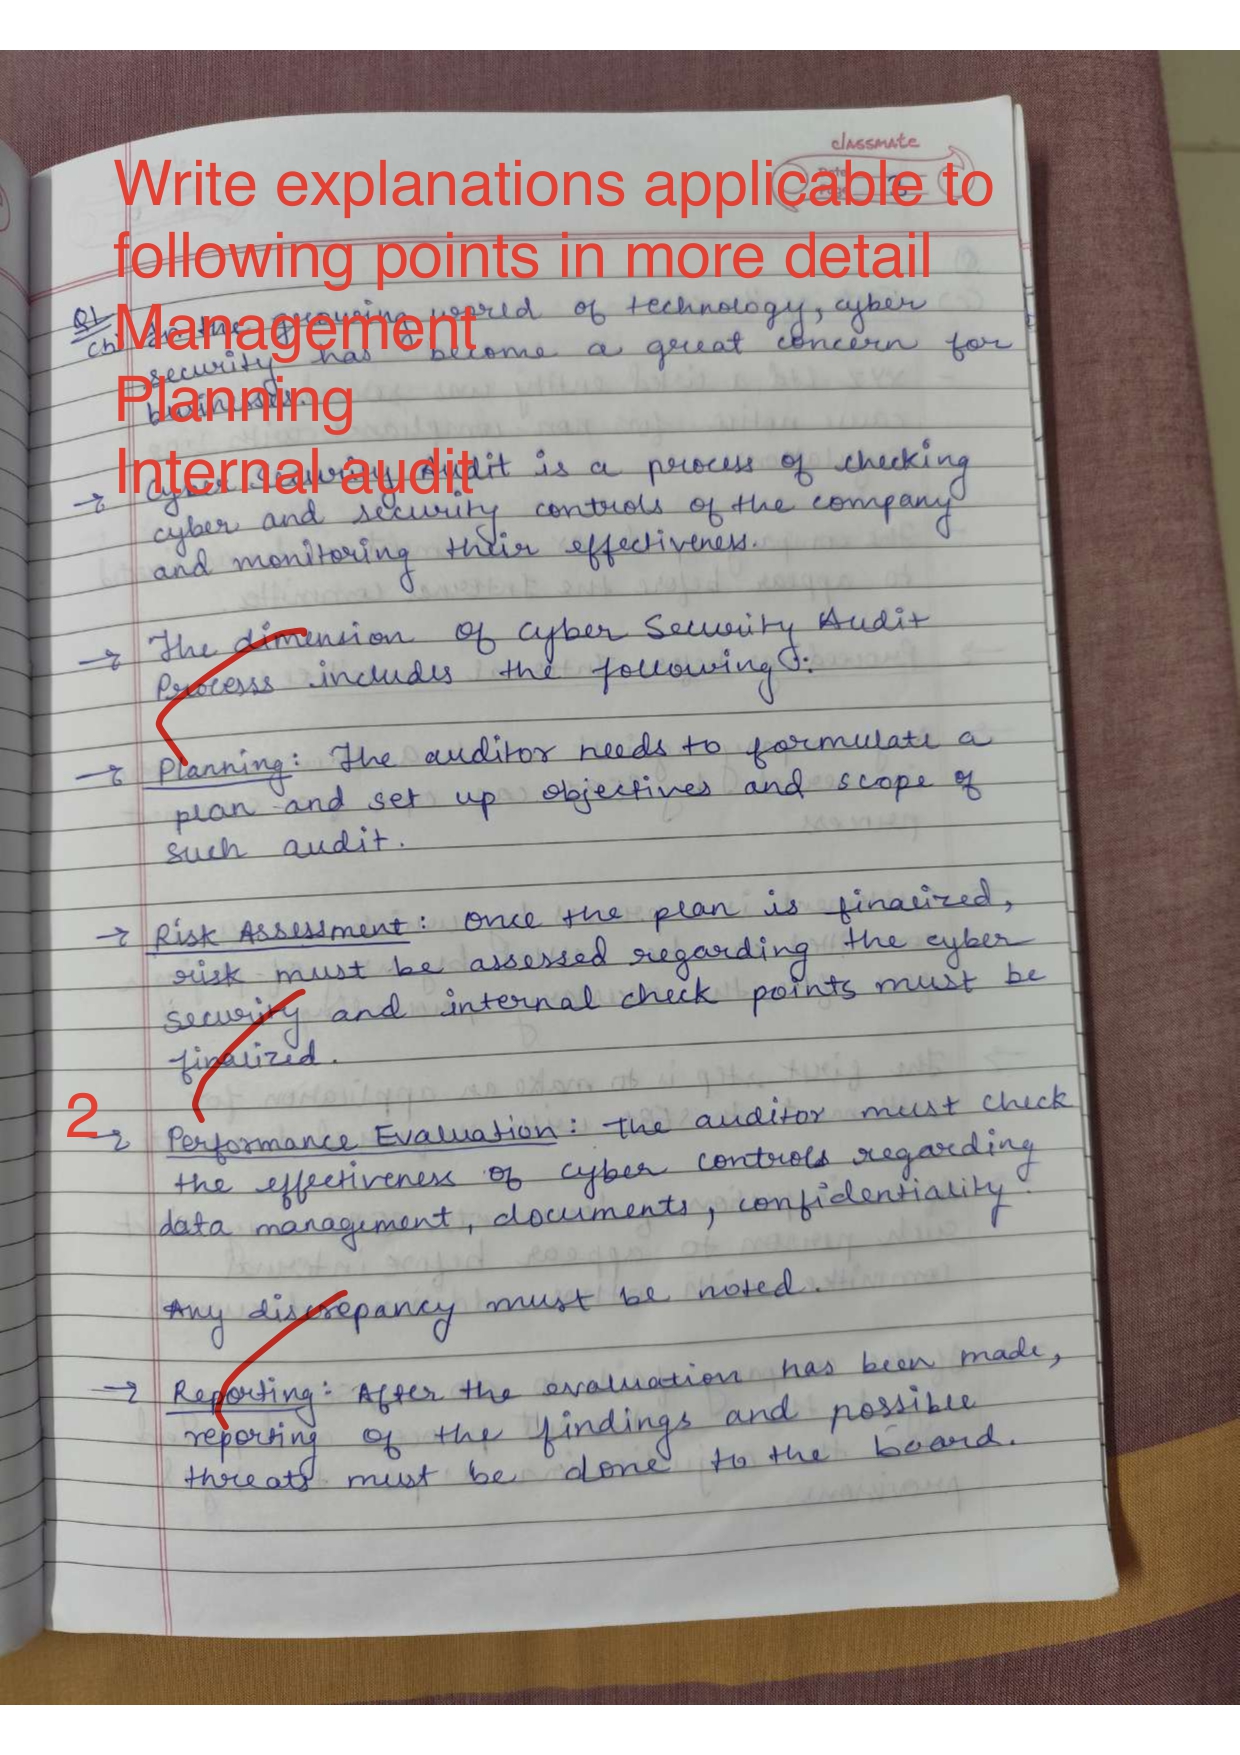 classmate
Write explanations applicable to
following points in more detail
Management
Planning
Internal audit
Q1
In the growing world of technology, cyber
security has become a great concern for
businesses.
→ Cyber Security Audit is a process of checking
cyber and security controls of the company
and monitoring their effectiveness.
→ The dimension of cyber Security Audit
Processs includes the following:
→ Planning: The auditor needs to formulate a
plan and set up objectives and scope of
such audit.
→ Risk Assessment: Once the plan is finalized,
risk must be assessed regarding the cyber
security and internal check points must be
finalized.
2
→ Performance Evaluation: The auditor must check
the effectiveness of cyber controls regarding
data management, documents, confidentiality.
Any discrepancy must be noted.
→ Reporting: After the evaluation has been made,
reporting of the findings and possible
threats must be done to the board.